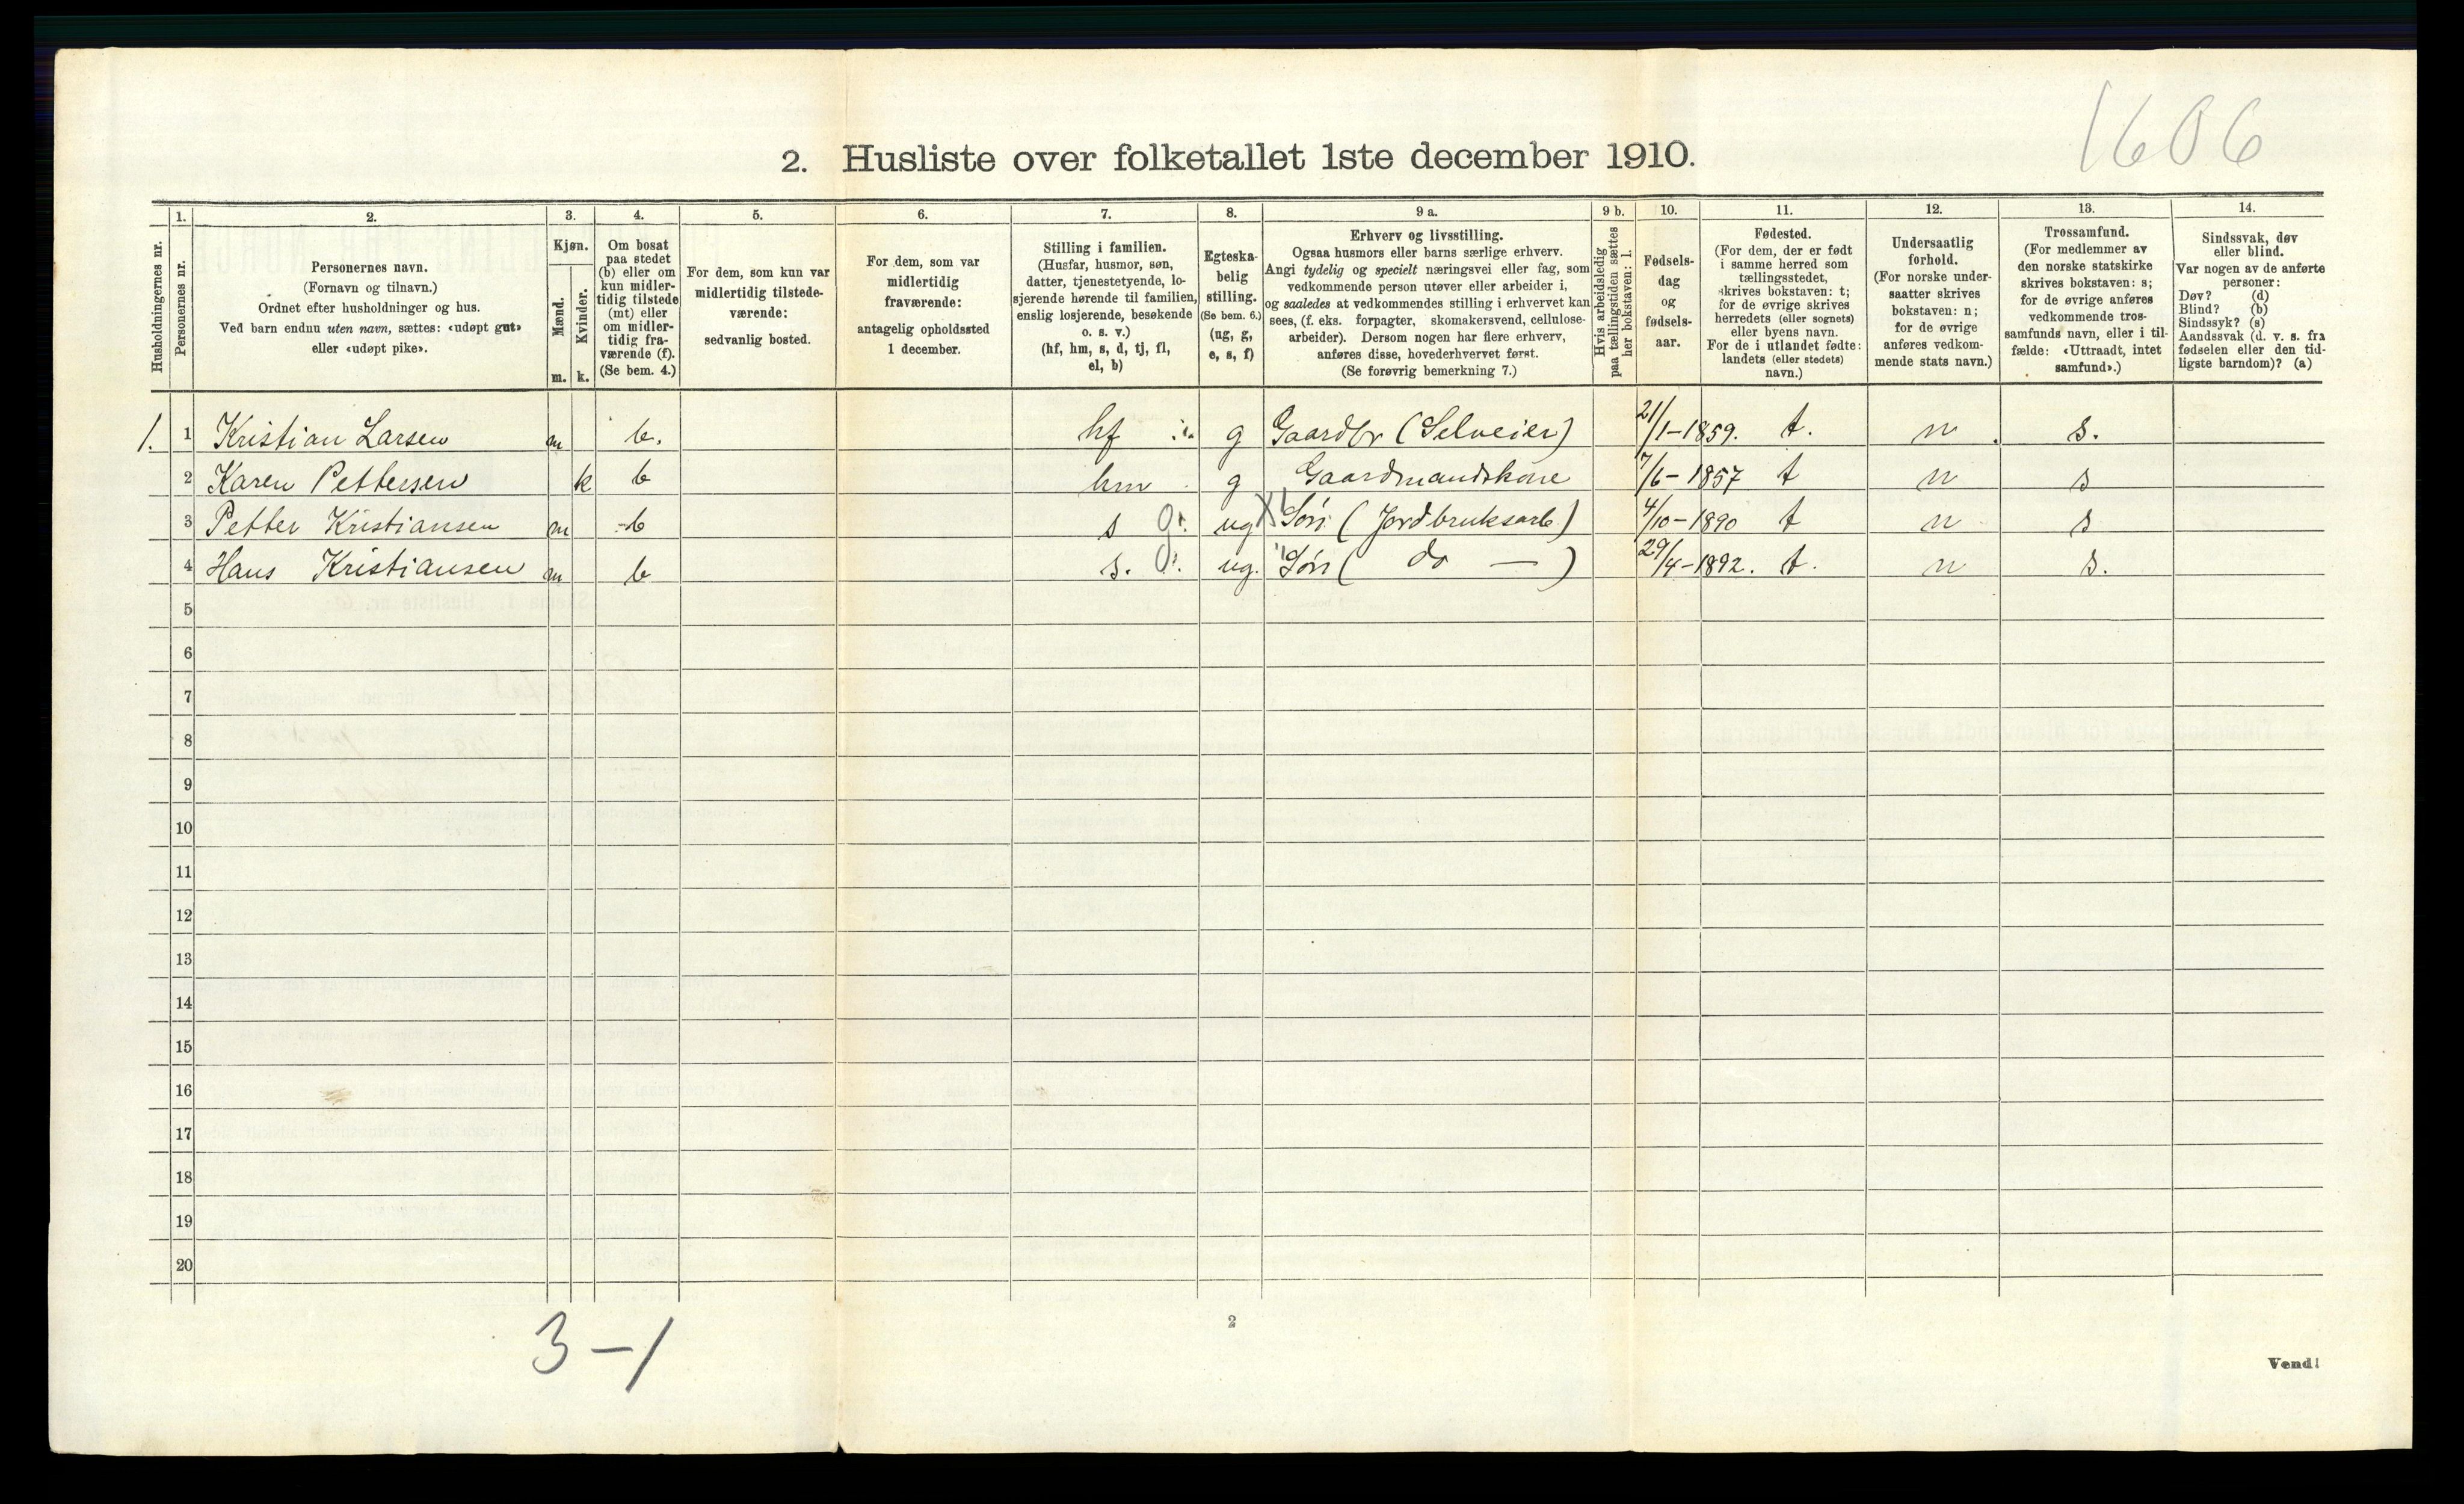 1606
2. Husliste over folketallet 1ste december 1910.
Husholdningernes nr.
1.
Personernes nr.
2.
Personernes navn.
(Fornavn og tilnavn.)
Ordnet efter husholdninger og hus.
Ved barn endnu uten navn, sættes: «udøpt gut»
eller «udøpt pike».
3.
Kjøn.
Mænd.
m.
Kvinder.
k.
4.
Om bosat
paa stedet
(b) eller om
kun midler-
tidig tilstede
(mt) eller
om midler-
tidig fra-
værende (f).
(Se bem. 4.)
5.
For dem, som kun var
midlertidig tilstede-
værende:
sedvanlig bosted.
6.
For dem, som var
midlertidig
fraværende:
antagelig opholdssted
1 december.
7.
Stilling i familien.
(Husfar, husmor, søn,
datter, tjenestetyende, lo-
sjerende hørende til familien,
enslig losjerende, besøkende
o. s. v.)
(hf, hm, s, d, tj, fl,
el, b)
8.
Egteska-
belig
stilling.
(Se bem. 6.)
(ug, g,
e, s, f)
9 a.
Erhverv og livsstilling.
Ogsaa husmors eller barns særlige erhverv.
Angi tydelig og specielt næringsvei eller fag, som
vedkommende person utøver eller arbeider i,
og saaledes at vedkommendes stilling i erhvervet kan
sees, (f. eks. forpagter, skomakersvend, cellulose-
arbeider). Dersom nogen har flere erhverv,
anføres disse, hovederhvervet først.
(Se forøvrig bemerkning 7.)
9 b.
Hvis arbeidsledig
paa tællingstiden sættes
her bokstaven: l.
10.
Fødsels-
dag
og
fødsels-
aar.
11.
Fødested.
(For dem, der er født
i samme herred som
tællingsstedet,
skrives bokstaven: t;
for de øvrige skrives
herredets (eller sognets)
eller byens navn.
For de i utlandet fødte:
landets (eller stedets)
navn.)
12.
Undersaatlig
forhold.
(For norske under-
saatter skrives
bokstaven: n;
for de øvrige
anføres vedkom-
mende stats navn.)
13.
Trossamfund.
(For medlemmer av
den norske statskirke
skrives bokstaven: s;
for de øvrige anføres
vedkommende tros-
samfunds navn, eller i til-
fælde: «Uttraadt, intet
samfund».)
14.
Sindssvak, døv
eller blind.
Var nogen av de anførte
personer:
Døv? (d)
Blind? (b)
Sindssyk? (s)
Aandssvak (d. v. s. fra
fødselen eller den tid-
ligste barndom)? (a)
1. 1 Kristian Larsen m b. hf g Gaardbr (Selveier) 21/1-1859. t. n s.
2 Karen Pettersen k b hm g Gaardmandskone 7/6-1857 t n s
3 Petter Kristiansen m b s ug Søn (Jordbruksarb) 4/10-1890 t n s
4 Hans Kristiansen m b s. ug. Søn ( do — ) 29/4-1892. t. n s.
5
6
7
8
9
10
11
12
13
14
15
16
17
18
19
20
3-1
2
Vend!